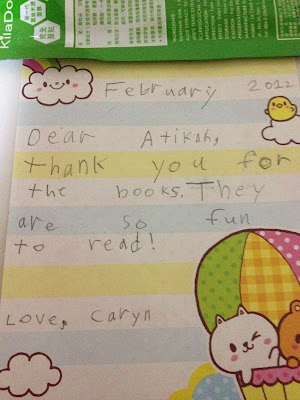 kilaDo
February 2022
Dear Atikah,
thank you for
the books. They
are so fun
to read!
Love, Caryn